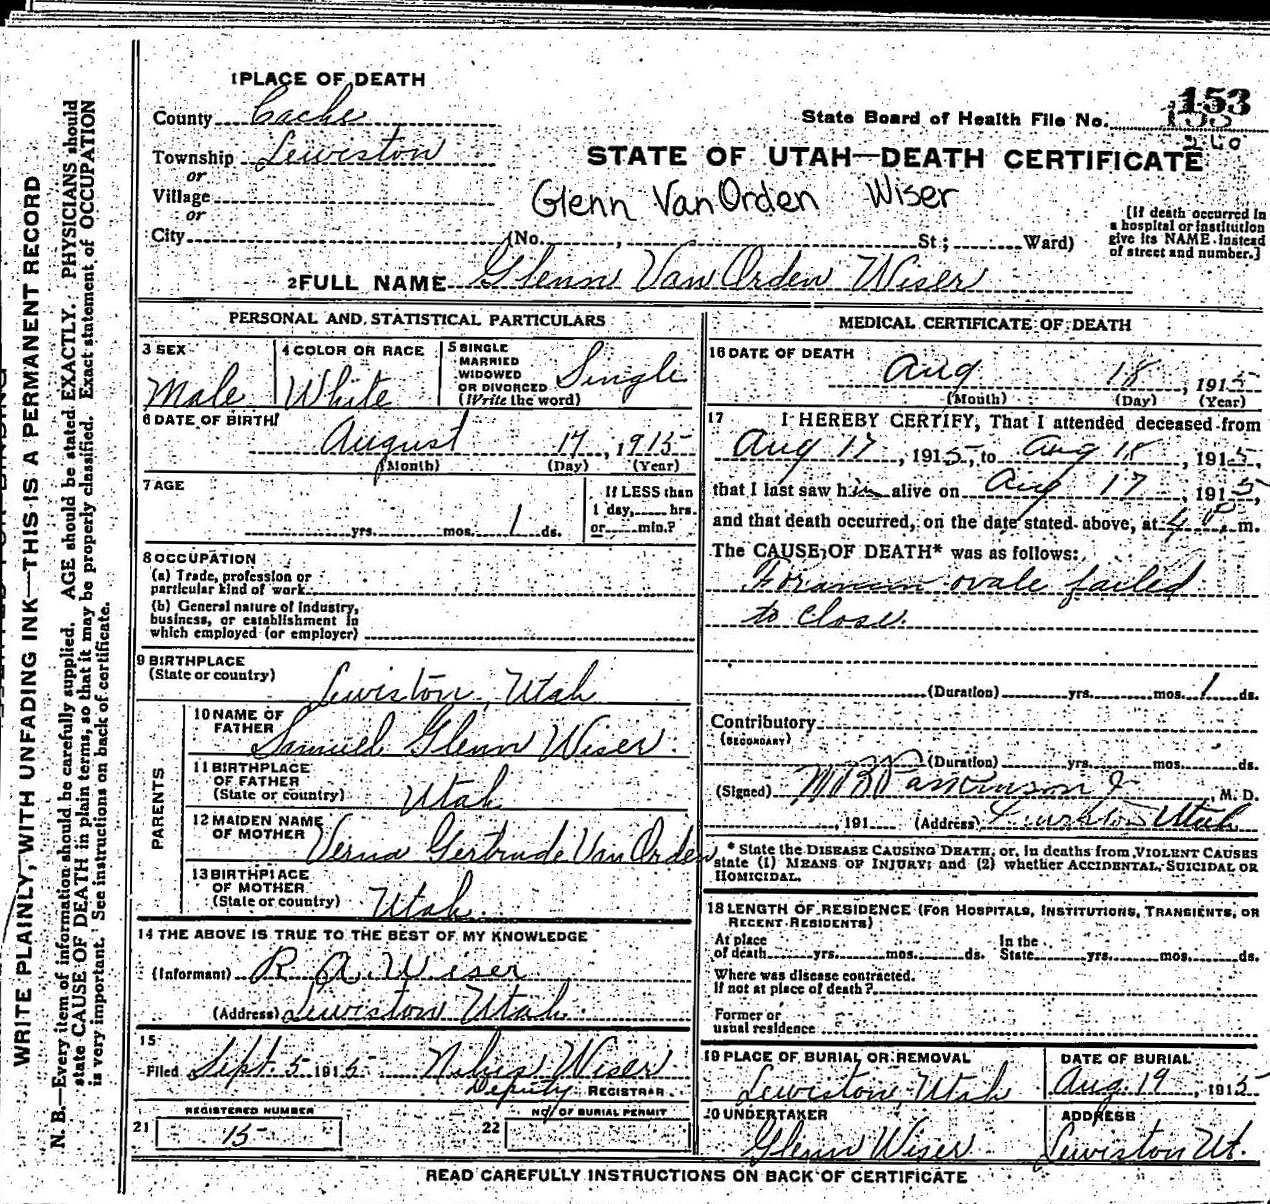 1 PLACE OF DEATH
County Cache
State Board of Health File No. 153
Township Lewiston
260
or
STATE OF UTAH—DEATH CERTIFICATE
Village
Glenn VanOrden Wiser
or
City (No. , St; Ward)
[If death occurred in
a hospital or institution
give its NAME instead
of street and number.]
2 FULL NAME Glenn Van Orden Wiser
PERSONAL AND STATISTICAL PARTICULARS
3 SEX
Male
4 COLOR OR RACE
White
5 SINGLE
MARRIED
WIDOWED
OR DIVORCED
(Write the word)
Single
6 DATE OF BIRTH
August 17, 1915
(Month) (Day) (Year)
7 AGE
yrs. mos. 1 ds.
If LESS than
1 day, hrs.
or min.?
8 OCCUPATION
(a) Trade, profession or
particular kind of work
(b) General nature of industry,
business, or establishment in
which employed (or employer)
9 BIRTHPLACE
(State or country)
Lewiston, Utah
PARENTS
10 NAME OF
FATHER
Samuel Glenn Wiser
11 BIRTHPLACE
OF FATHER
(State or country)
Utah
12 MAIDEN NAME
OF MOTHER
Verna Gertrude Van Orden
13 BIRTHPLACE
OF MOTHER
(State or country)
Utah
14 THE ABOVE IS TRUE TO THE BEST OF MY KNOWLEDGE
(Informant) R A. Wiser
(Address) Lewiston Utah.
15
Filed Sept. 5 1915 Wiser
Deputy REGISTRAR
REGISTERED NUMBER
21 15
NO. OF BURIAL PERMIT
22
MEDICAL CERTIFICATE OF DEATH
16 DATE OF DEATH
Aug 18, 1915
(Month) (Day) (Year)
17 I HEREBY CERTIFY, That I attended deceased from
Aug 17, 1915, to Aug 18, 1915,
that I last saw him alive on Aug 17, 1915,
and that death occurred, on the date stated above, at 4 P. m.
The CAUSE OF DEATH* was as follows:
Foramen ovale failed
to close.
(Duration) yrs. mos. 1 ds.
Contributory
(SECONDARY)
(Duration) yrs. mos. ds.
(Signed) Parkinson, M. D.
, 191 (Address) Lewiston Utah
* State the DISEASE CAUSING DEATH, or, in deaths from VIOLENT CAUSES
state (1) MEANS OF INJURY; and (2) whether ACCIDENTAL, SUICIDAL OR
HOMICIDAL.
18 LENGTH OF RESIDENCE (FOR HOSPITALS, INSTITUTIONS, TRANSIENTS, OR
RECENT RESIDENTS)
At place
of death yrs. mos. ds.
In the
State yrs. mos. ds.
Where was disease contracted.
If not at place of death?
Former or
usual residence
19 PLACE OF BURIAL OR REMOVAL
Lewiston, Utah
DATE OF BURIAL
Aug. 19, 1915
20 UNDERTAKER
Glenn Wiser
ADDRESS
Lewiston Ut.
READ CAREFULLY INSTRUCTIONS ON BACK OF CERTIFICATE
WRITE PLAINLY, WITH UNFADING INK—THIS IS A PERMANENT RECORD
N. B.—Every item of information should be carefully supplied. AGE should be stated EXACTLY. PHYSICIANS should
state CAUSE OF DEATH in plain terms, so that it may be properly classified. Exact statement of OCCUPATION
is very important. See instructions on back of certificate.